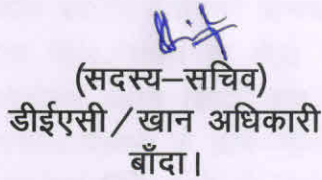 (सदस्य–सचिव)
डीईएसी/खान अधिकारी
बाँदा।